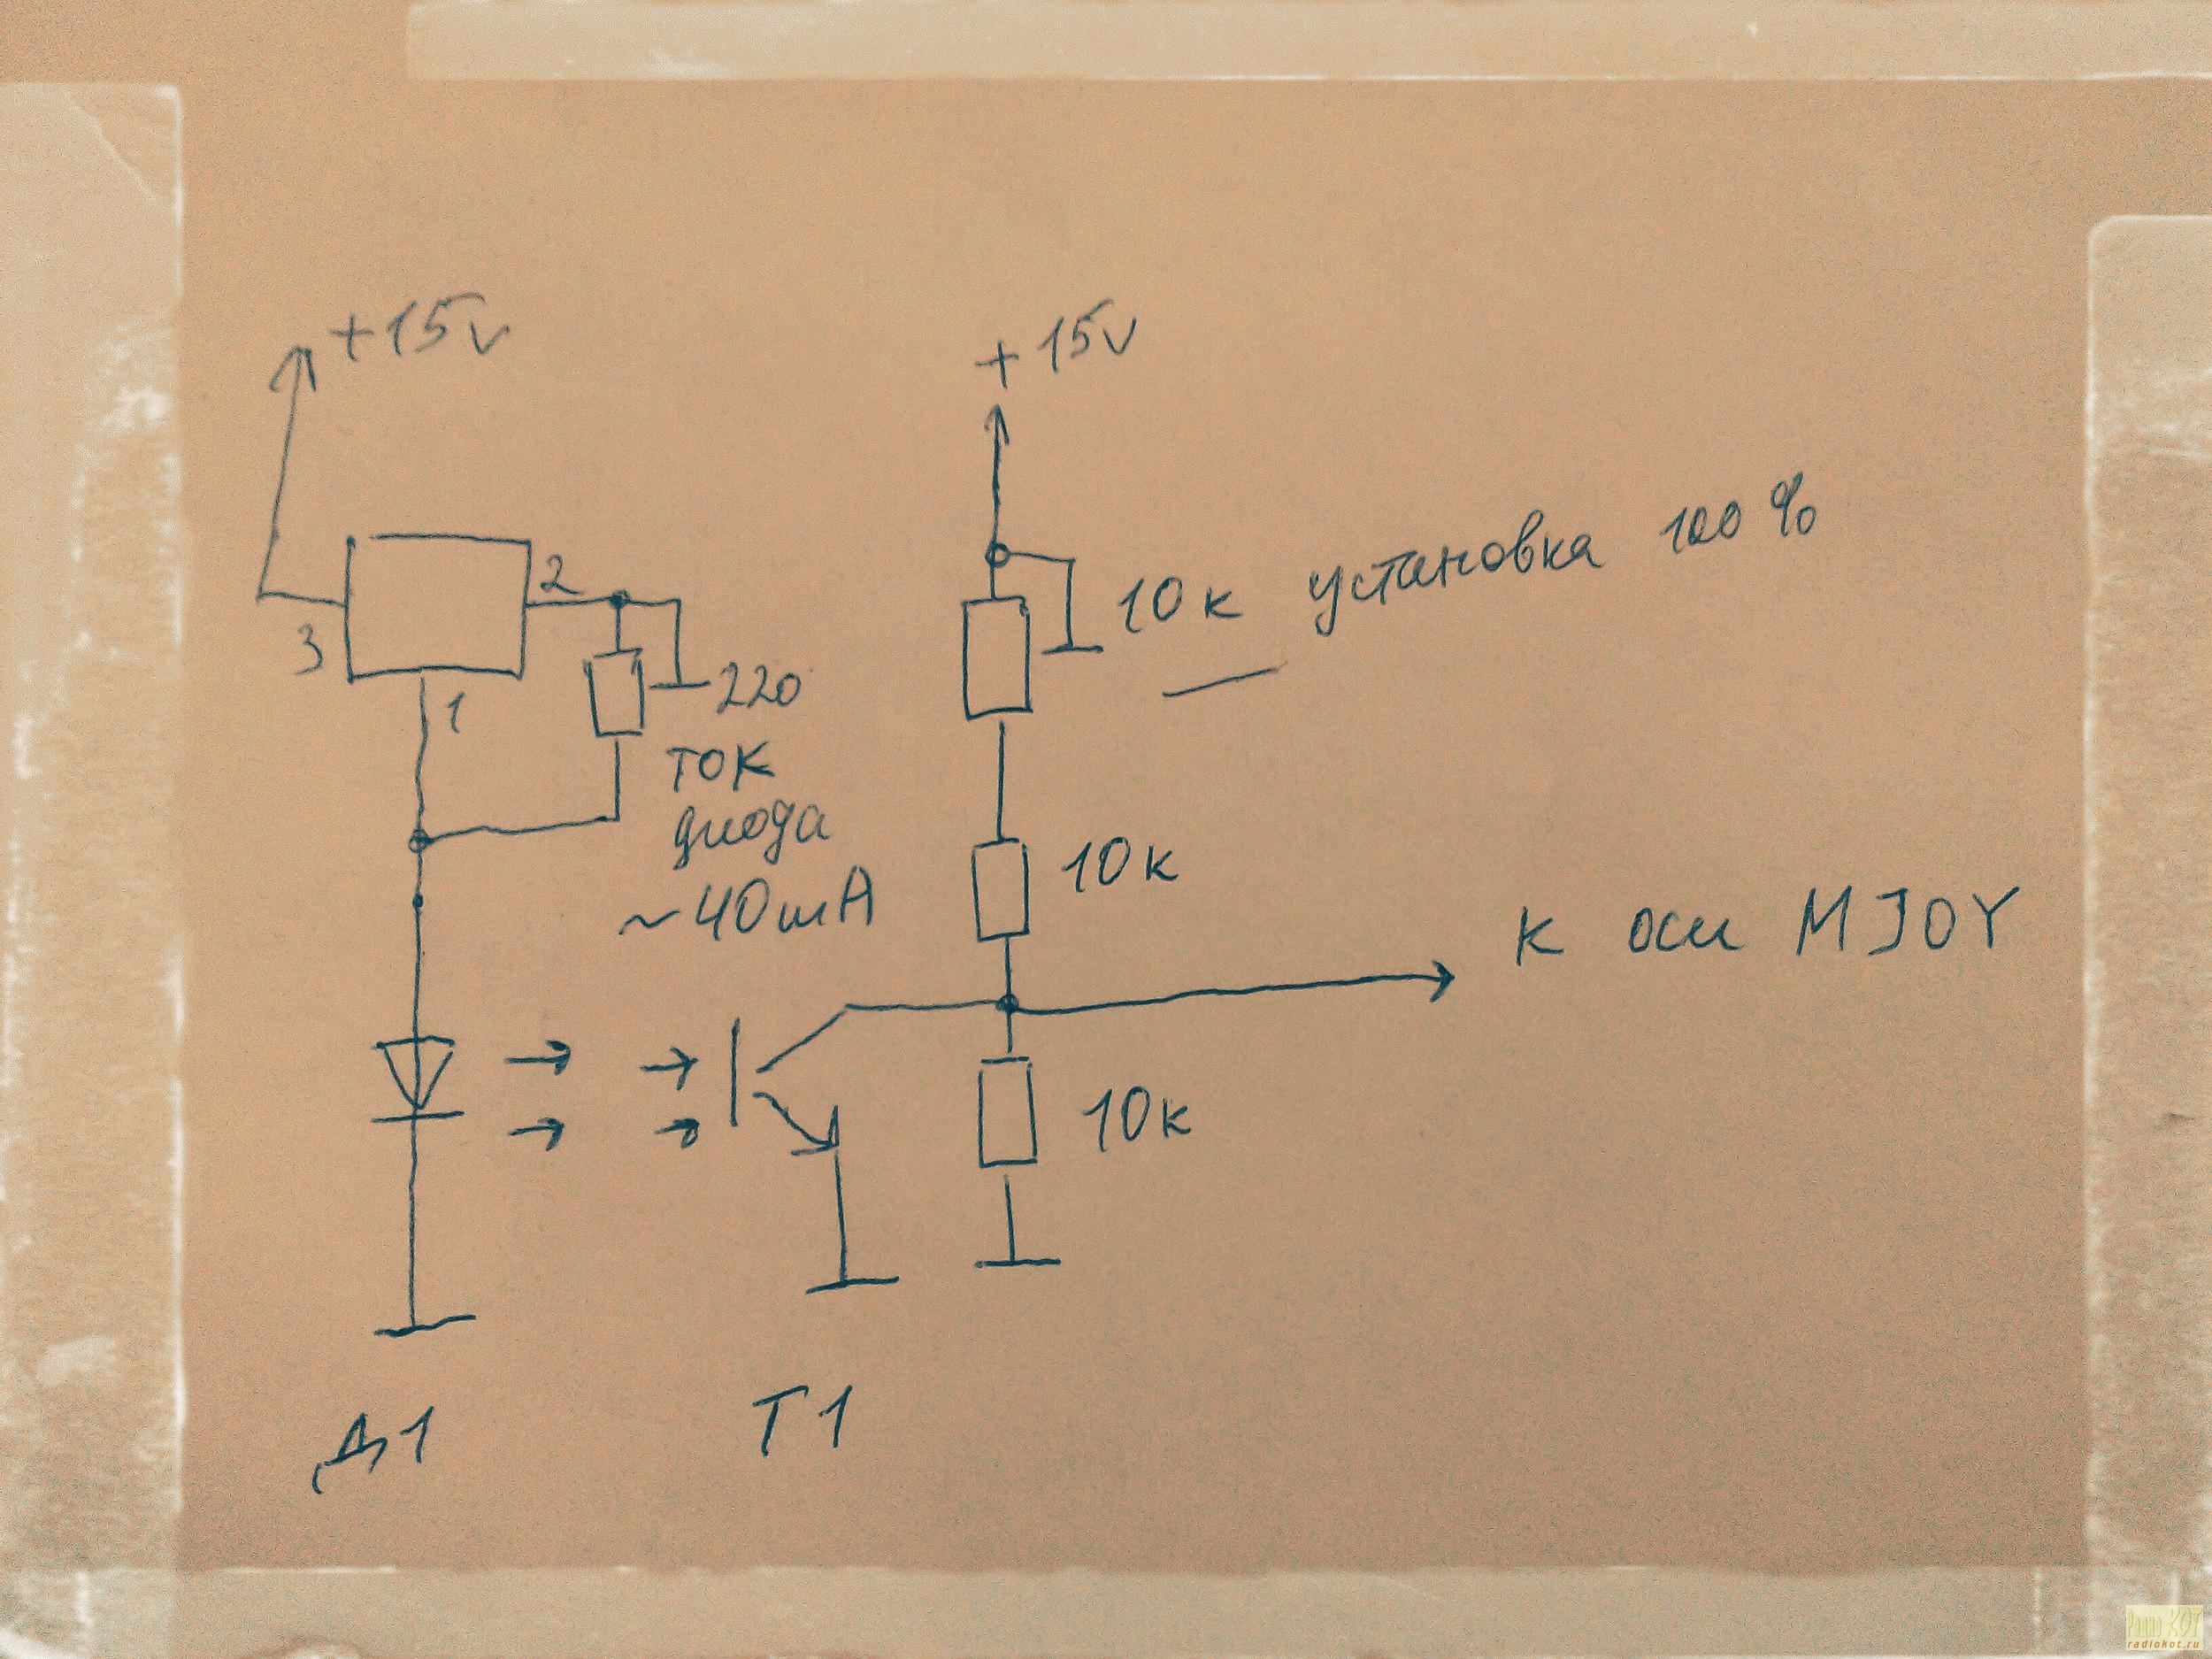 +15v
+ 15v
3
2
1
220
ток
диода
~40mA
10к установка 100%
10к
к оси MJOY
10к
Д1
Т1
Радио КОТ
radiokot.ru